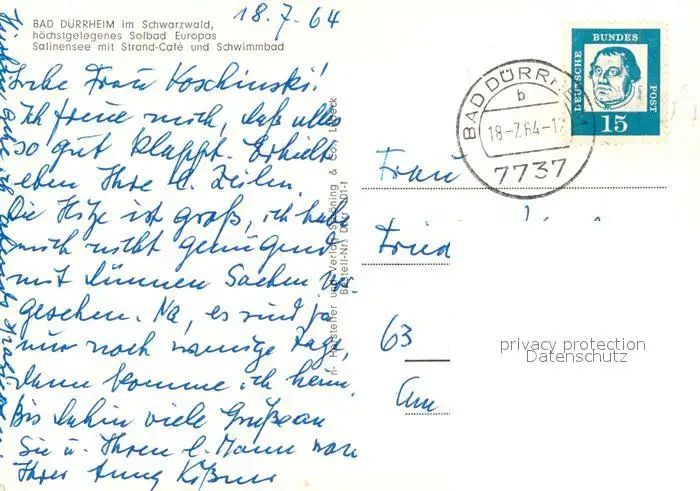 18.7.64
BAD DÜRRHEIM im Schwarzwald,
höchstgelegenes Solbad Europas
Salinensee mit Strand-Café und Schwimmbad
Liebe Frau Koschinski!
Ich freue mich, daß alles
so gut klappt. Erhielt
eben Ihre l. Zeilen.
Die Hitze ist groß, ich habe
mich nicht genügend
mit dünnen Sachen vor
gesehen. Na, es sind ja
nur noch wenige Tage,
dann komme ich heim.
Bis dahin viele Grüße an
Sie u. Ihren l. Mann von
Ihrer
Hersteller und Verlag Schöning & Co., Lübeck
Bestell-Nr.
DEUTSCHE BUNDESPOST
15
BAD DÜRRHEIM
b
18-7.64-1
7737
Frau
Fried
63
Am
privacy protection
Datenschutz